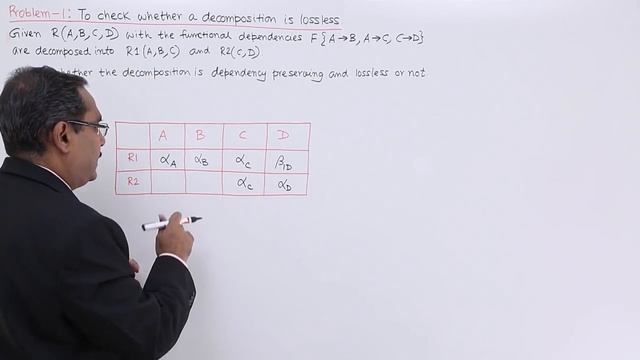 Problem-1: To check whether a decomposition is lossless
Given R(A,B,C,D) with the functional dependencies F{A→B, A→C, C→D}
are decomposed into R1(A,B,C) and R2(C,D)
whether the decomposition is dependency preserving and lossless or not
A B C D
R1 αA αB αC β1D
R2 αC αD